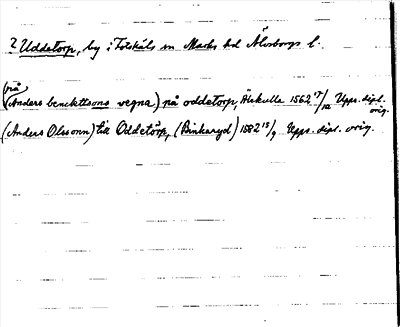 2 Uddetorp, by i Fotskäls sn Marks hd Älvsborgs l.
(på
(Anders benckttsons vegna) på oddetorp, Äskulla 1562 17/12 Upps. dipl. orig.
(Anders Olssonn) till Oddetorp, (Binkaryd) 1582 18/9 Upps. dipl. orig.